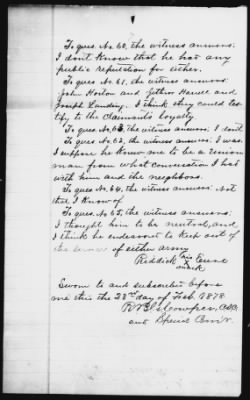 To ques. No. 60, the witness answers:
I don't know that he has any
public reputation for either.
To ques. No. 61, the witness answers:
John Horton and Jethro Harrell and
Joseph Lunding. I think they could tes-
tify to the Claimant's loyalty.
To ques. No. 63, the witness answers: I don't
To ques. No. 62, the witness answers: I was.
I suppose he knew me to be a union
man from what conversation I had
with him and the neighbors.
To ques. No. 64, the witness answers: Not
that I know of.
To ques. No. 65, the witness answers:
I thought him to be neutral, and
I think he endeavored to keep out of
the service of either army
Reddick his
mark
Sworn to and subscribed before
me this the 22nd day of Feb. 1878
and Special Com'r.